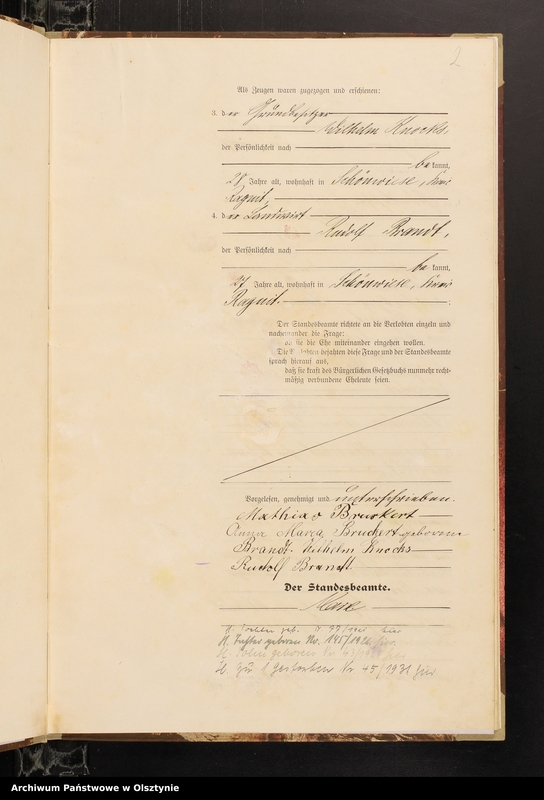 2
Als Zeugen waren zugezogen und erschienen:
3. der Grundbesitzer
Wilhelm Knocks,
der Persönlichkeit nach
be kannt,
28 Jahre alt, wohnhaft in Schönwiese, Kreis
Ragnit.
4. der Landwirt
Rudolf Brandt,
der Persönlichkeit nach
be kannt,
27 Jahre alt, wohnhaft in Schönwiese, Kreis
Ragnit. ;
Der Standesbeamte richtete an die Verlobten einzeln und
nacheinander die Frage:
ob sie die Ehe miteinander eingehen wollen.
Die Verlobten bejahten diese Frage und der Standesbeamte
sprach hierauf aus,
daß sie kraft des Bürgerlichen Gesetzbuchs nunmehr recht-
mäßig verbundene Eheleute seien.
Vorgelesen, genehmigt und unterschrieben.
Mathias Bruckert
Anna Maria Bruckert geborene
Brandt. Wilhelm Knocks
Rudolf Brandt
Der Standesbeamte.
1. Tochter geb.
II. Tochter geboren No. 145/
geboren Nr 43/
gestorben Nr 45/1931 hier
Archiwum Państwowe w Olsztynie